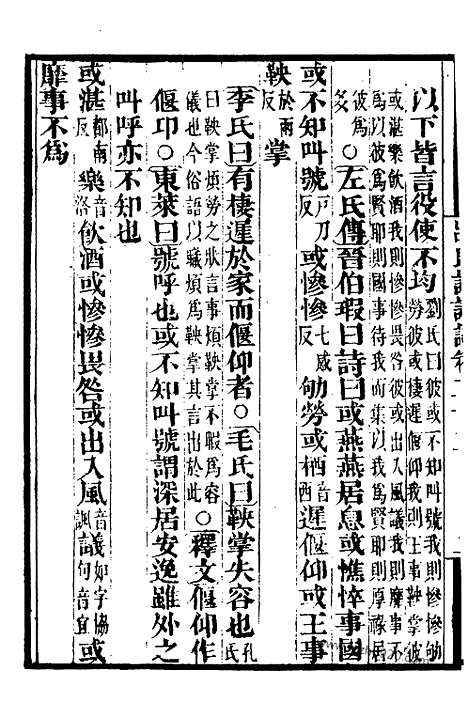 以下皆言役使不均劉氏曰彼或不知叫號我則慘慘劬勞彼或棲遲偃仰我則王事鞅掌彼
或湛樂飲酒我則慘慘畏咎彼或出入風議我則靡事不為以彼為賢耶則國事待我而集以我為賢耶則厚祿居
彼為多○左氏傳晉伯瑕曰詩曰或燕燕居息或憔悴事國
或不知叫號戶刀反或慘慘七感反劬勞或栖音西遲偃仰或王事
鞅於兩反掌
李氏曰有棲遲於家而偃仰者○毛氏曰鞅掌失容也孔氏
曰鞅掌煩勞之狀言事煩鞅掌不暇為容儀也今俗語以職煩為鞅掌其言出於此○釋文偃仰作
偃卬○東萊曰號呼也或不知叫號謂深居安逸雖外之
叫呼亦不知也
或湛都南反樂音洛飲酒或慘慘畏咎或出入風音諷議如字協句音宜或
靡事不為